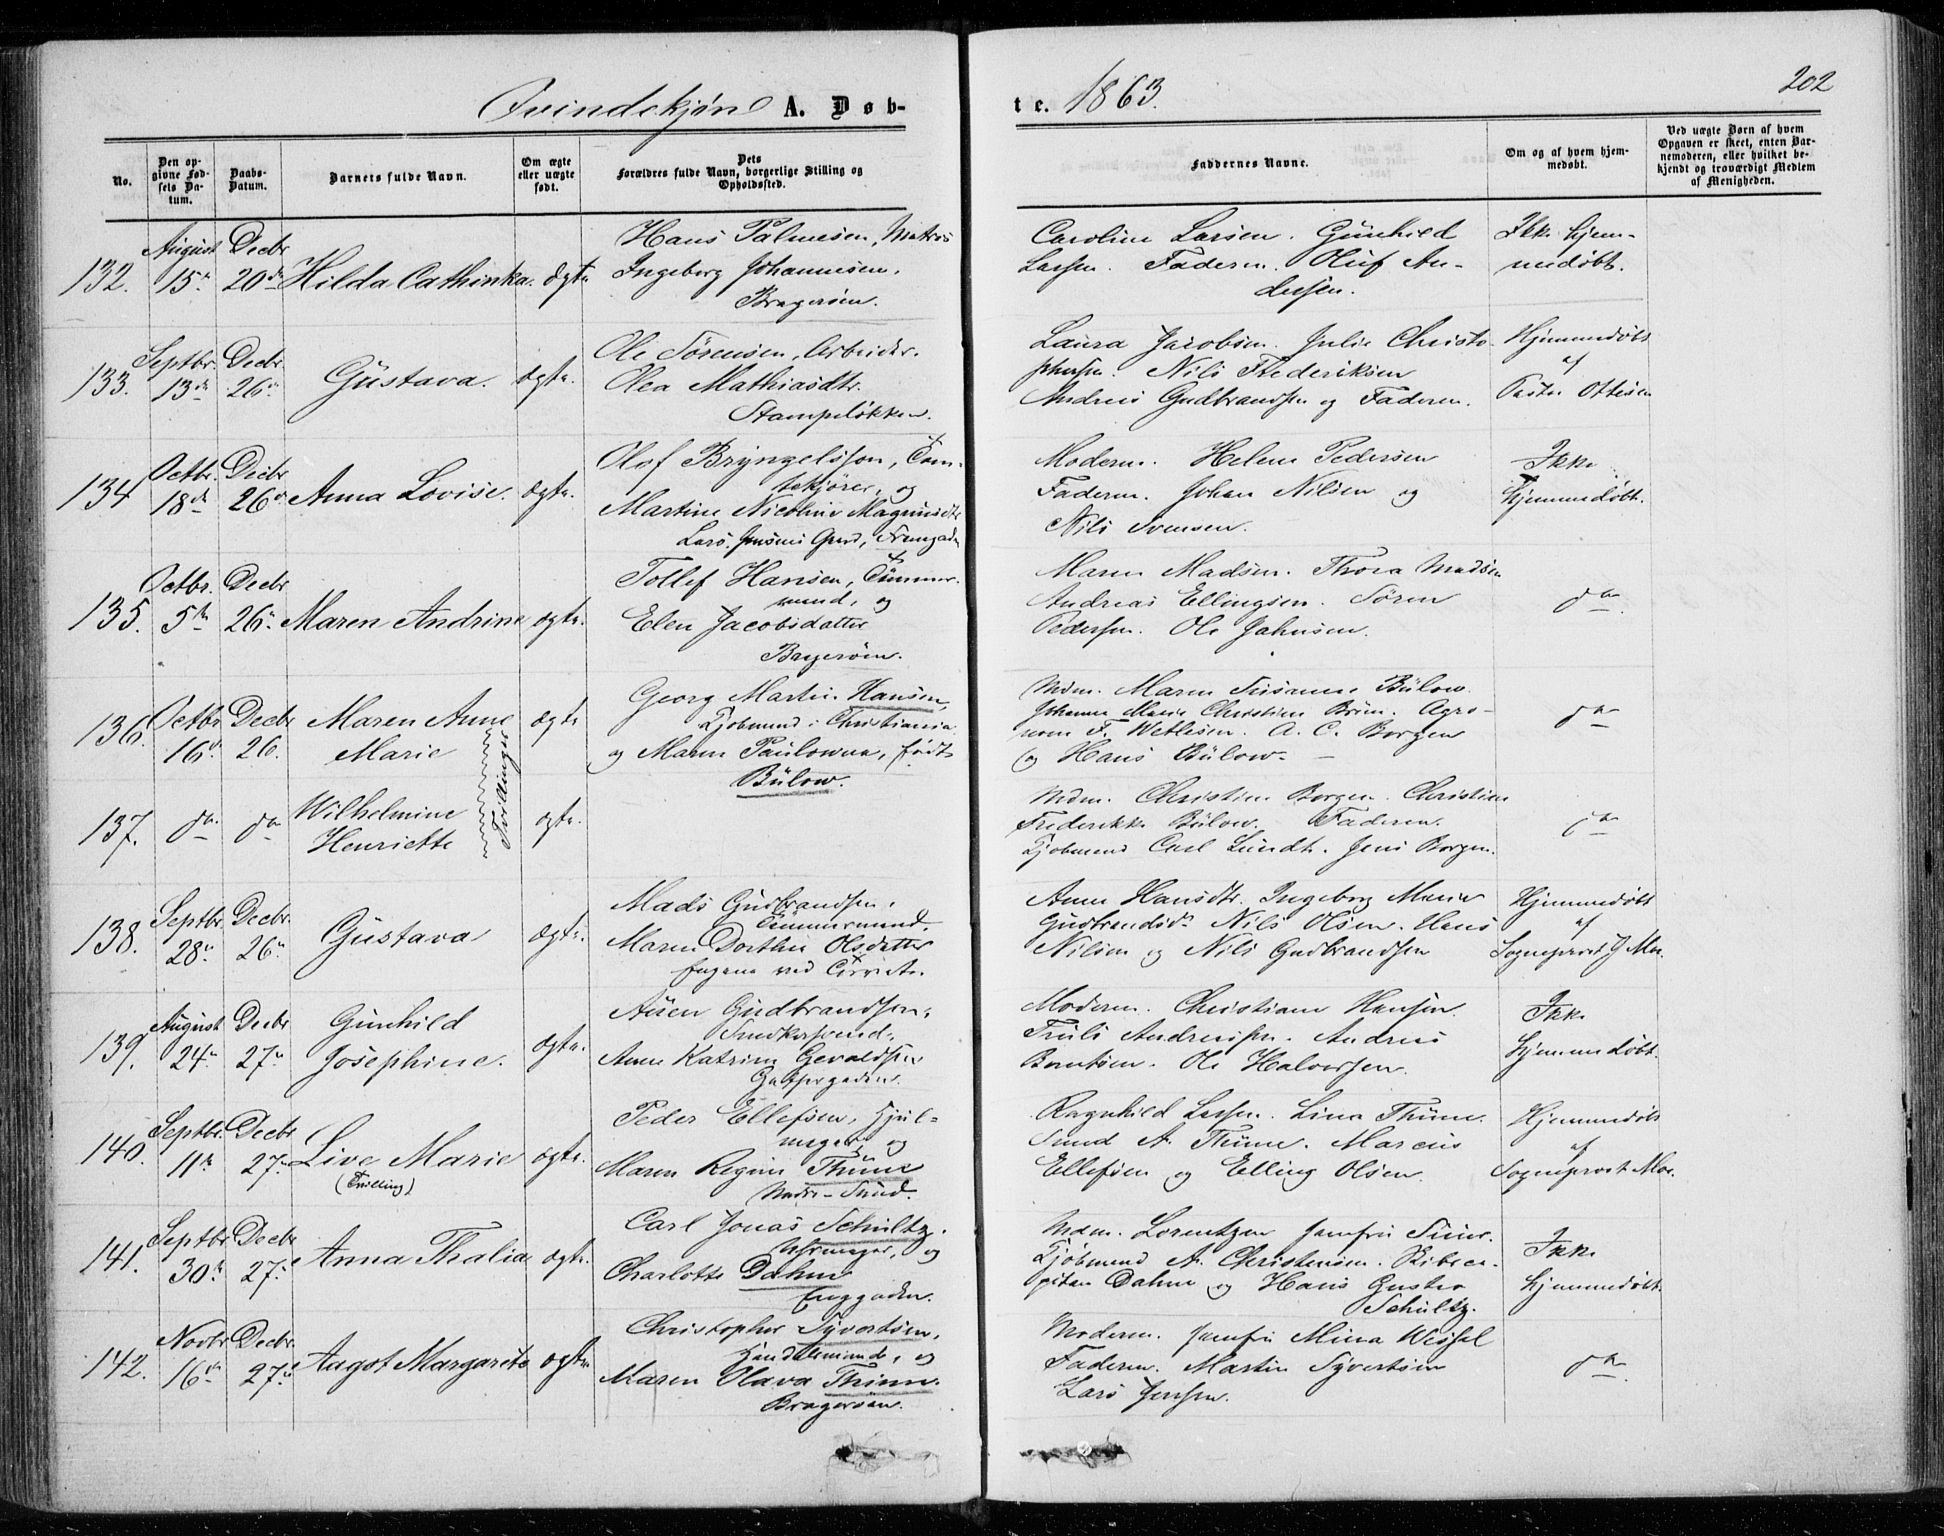 Qvindekjøn A. Døb-
No.
Den op-
givne Fød-
sels Da-
tum.
Daabs-
Datum.
Barnets fulde Navn.
Om ægte
eller uægte
født.
Dets
Forældres fulde Navn, borgerlige Stilling og
Opholdssted.
132. August 15de Decbr 20de Hilda Cathinka. Ægte
Hans Palmesen, Matros
Ingeborg Johannesen.
Bragerøen.
133. Septbr. 13de Decbr. 26de Gustava. ægte.
Ole Sørensen, Arbeider.
Olea Mathiasdtr.
Stampeløkken.
134 Octbr. 18de Decbr 26de Anna Lovise. ægte.
Olof Bryngelsson, Tom-
tekjører, og
Martine Nicoline Magnusdtr
Lars Jensens Gaard,
135. Octbr. 5te Decbr 26de Maren Andrine ægte.
Tollef Hansen, Tømmer-
mand, og
Elen Jacobsdatter
Bragerøen.
136. Octbr 16de Decbr 26. Maren Anne
Marie
ægte
Georg Martin Hansen,
Kjøbmand i Christiania
og Maren Paulowna, født
Bülow.
Tvillinger
137. do do Wilhelmine
Henriette
ægte.
138. Septbr 28de Decbr. 26de Gustava ægte.
Mads Gudbrandsen,
Tømmermand.
Maren Dorthea Olsdatter
Engene ved
139. August 24de Decbr 27de Gunhild
Josephine.
ægte.
Auen Gudbrandsen,
Anne Katrine
140. Septbr. 11te Decbr 27de Live Marie ægte.
(Tvilling)
Peder Ellefsen, Hjul-
mager, og
Maren Regine Thune
Nedre-Sund.
141. Septbr 30te Decbr 27de Anna Thalia ægte.
Carl Jonas Schultz.
Uhrmager, og
Charlotte Dahm
Enggaden.
142. Novbr 16de Decbr. 27de Aagot Margarete ægte
Christopher Syvertsen,
Handelsmand, og
Maren Olava Thune.
Bragerøen.
te. 1863.
202
Faddernes Navne.
Om og af hvem hjem-
medøbt.
Ved uægte Børn af hvem
Opgaven er skeet, enten Bar-
nemoderen, eller hvilket be-
kjendt og troværdigt Medlem
af Menigheden.
Caroline Larsen. Gunhild
Larsen. Faderen. Oluf An-
dersen.
Ikke hjem-
medøbt.
Laura Jacobsen. Julie Christo-
phersen. Nils Frederiksen
Andreas Gudbrandsen og Faderen.
Hjemmedøbt
af
Pastor Ottesen
Moderen. Helene Pedersen
Faderen. Johan Nilsen og
Nils Svensen.
Ikke
hjemmedøbt.
Maren Madsen. Thora Madsen
Andreas Ellingsen. Søren
Pedersen. Ole Jahnsen.
do
Mdm. Maren Susanne Bülow.
Johanne Marie Christine Bruun. Agro-
nom F. Wetlesen. A. C. Borgen
og Hans Bülow.
do
Mdm. Christine Borgen. Christine
Frederikke Bülow. Faderen.
Kjøbmand Carl Lundt. Jens Borgen.
do
Anne Hansdtr. Ingeborg Marie
Gudbrandsdr. Nils Olsen. Hans
Nilsen og Nils Gudbrandsen
Hjemmedøbt
af
Sogneprest J Moe.
Moderen. Christiane Hansen.
Truls Andreasen. Andreas
Berntsen. Ole Halvorsen.
Ikke
hjemmedøbt.
Ragnhild Larsen. Lina Thune.
Sund A. Thune. Marcus
Ellefsen og Elling Olsen.
Hjemmedøbt
af
Sogneprest Moe.
Mdm. Lorentzen Jomfru
Kjøbmand A. Christensen. Skibsca-
pitain Dahm og Hans Gustav
Schultz.
Ikke
hjemmedøbt.
Moderen. Jomfru Mina Wessel
Faderen. Martin Syvertsen
Lars Jensen.
do